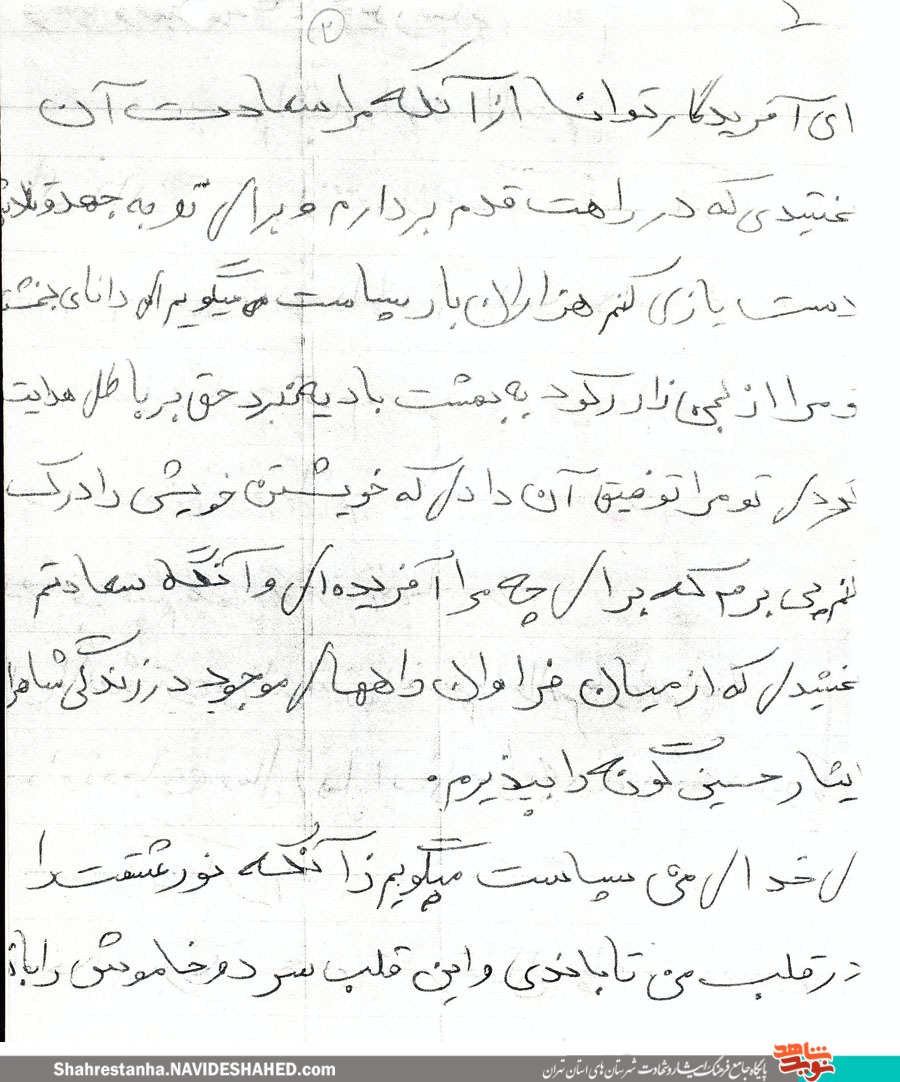 ۲
ای آفریدگار توانا از آنکه مرا سعادت آن
که در راهت قدم بردارم و برای تو به جهد و تلاش
دست یازی کنم هزاران بار سپاست میگویم ای دانای
و مرا از زار رکود به بهشت بادیه نبرد حق بر باطل هدایت
تو مرا توفیق آن دادی که خویشتن خویش را درک
پی برم که برای چه مرا آفریده‌ای و آنگه سعادتم
که از میان فراوان راههای موجود در زندگی
ایثار حسین گونه را بپذیرم.
ی خدای من سپاست میگویم زآنکه نور عشقت را
در قلب من تاباندی و این قلب سرد و خاموش را
Shahrestanha.NAVIDESHAHED.com
نوید شاهد
پایگاه جامع فرهنگ ایثار و شهادت شهرستان های استان تهران